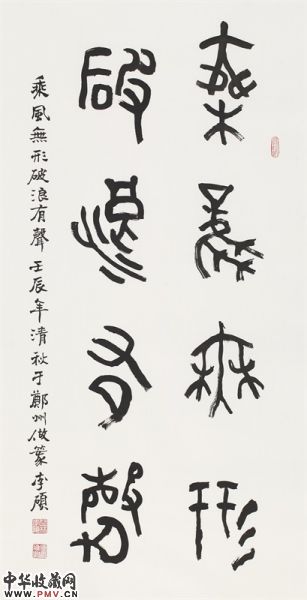 乘風無形
破浪有聲
乘風無形破浪有聲 壬辰年清秋于鄭州做篆 李碩
中华收藏网
WWW.PMV.CN